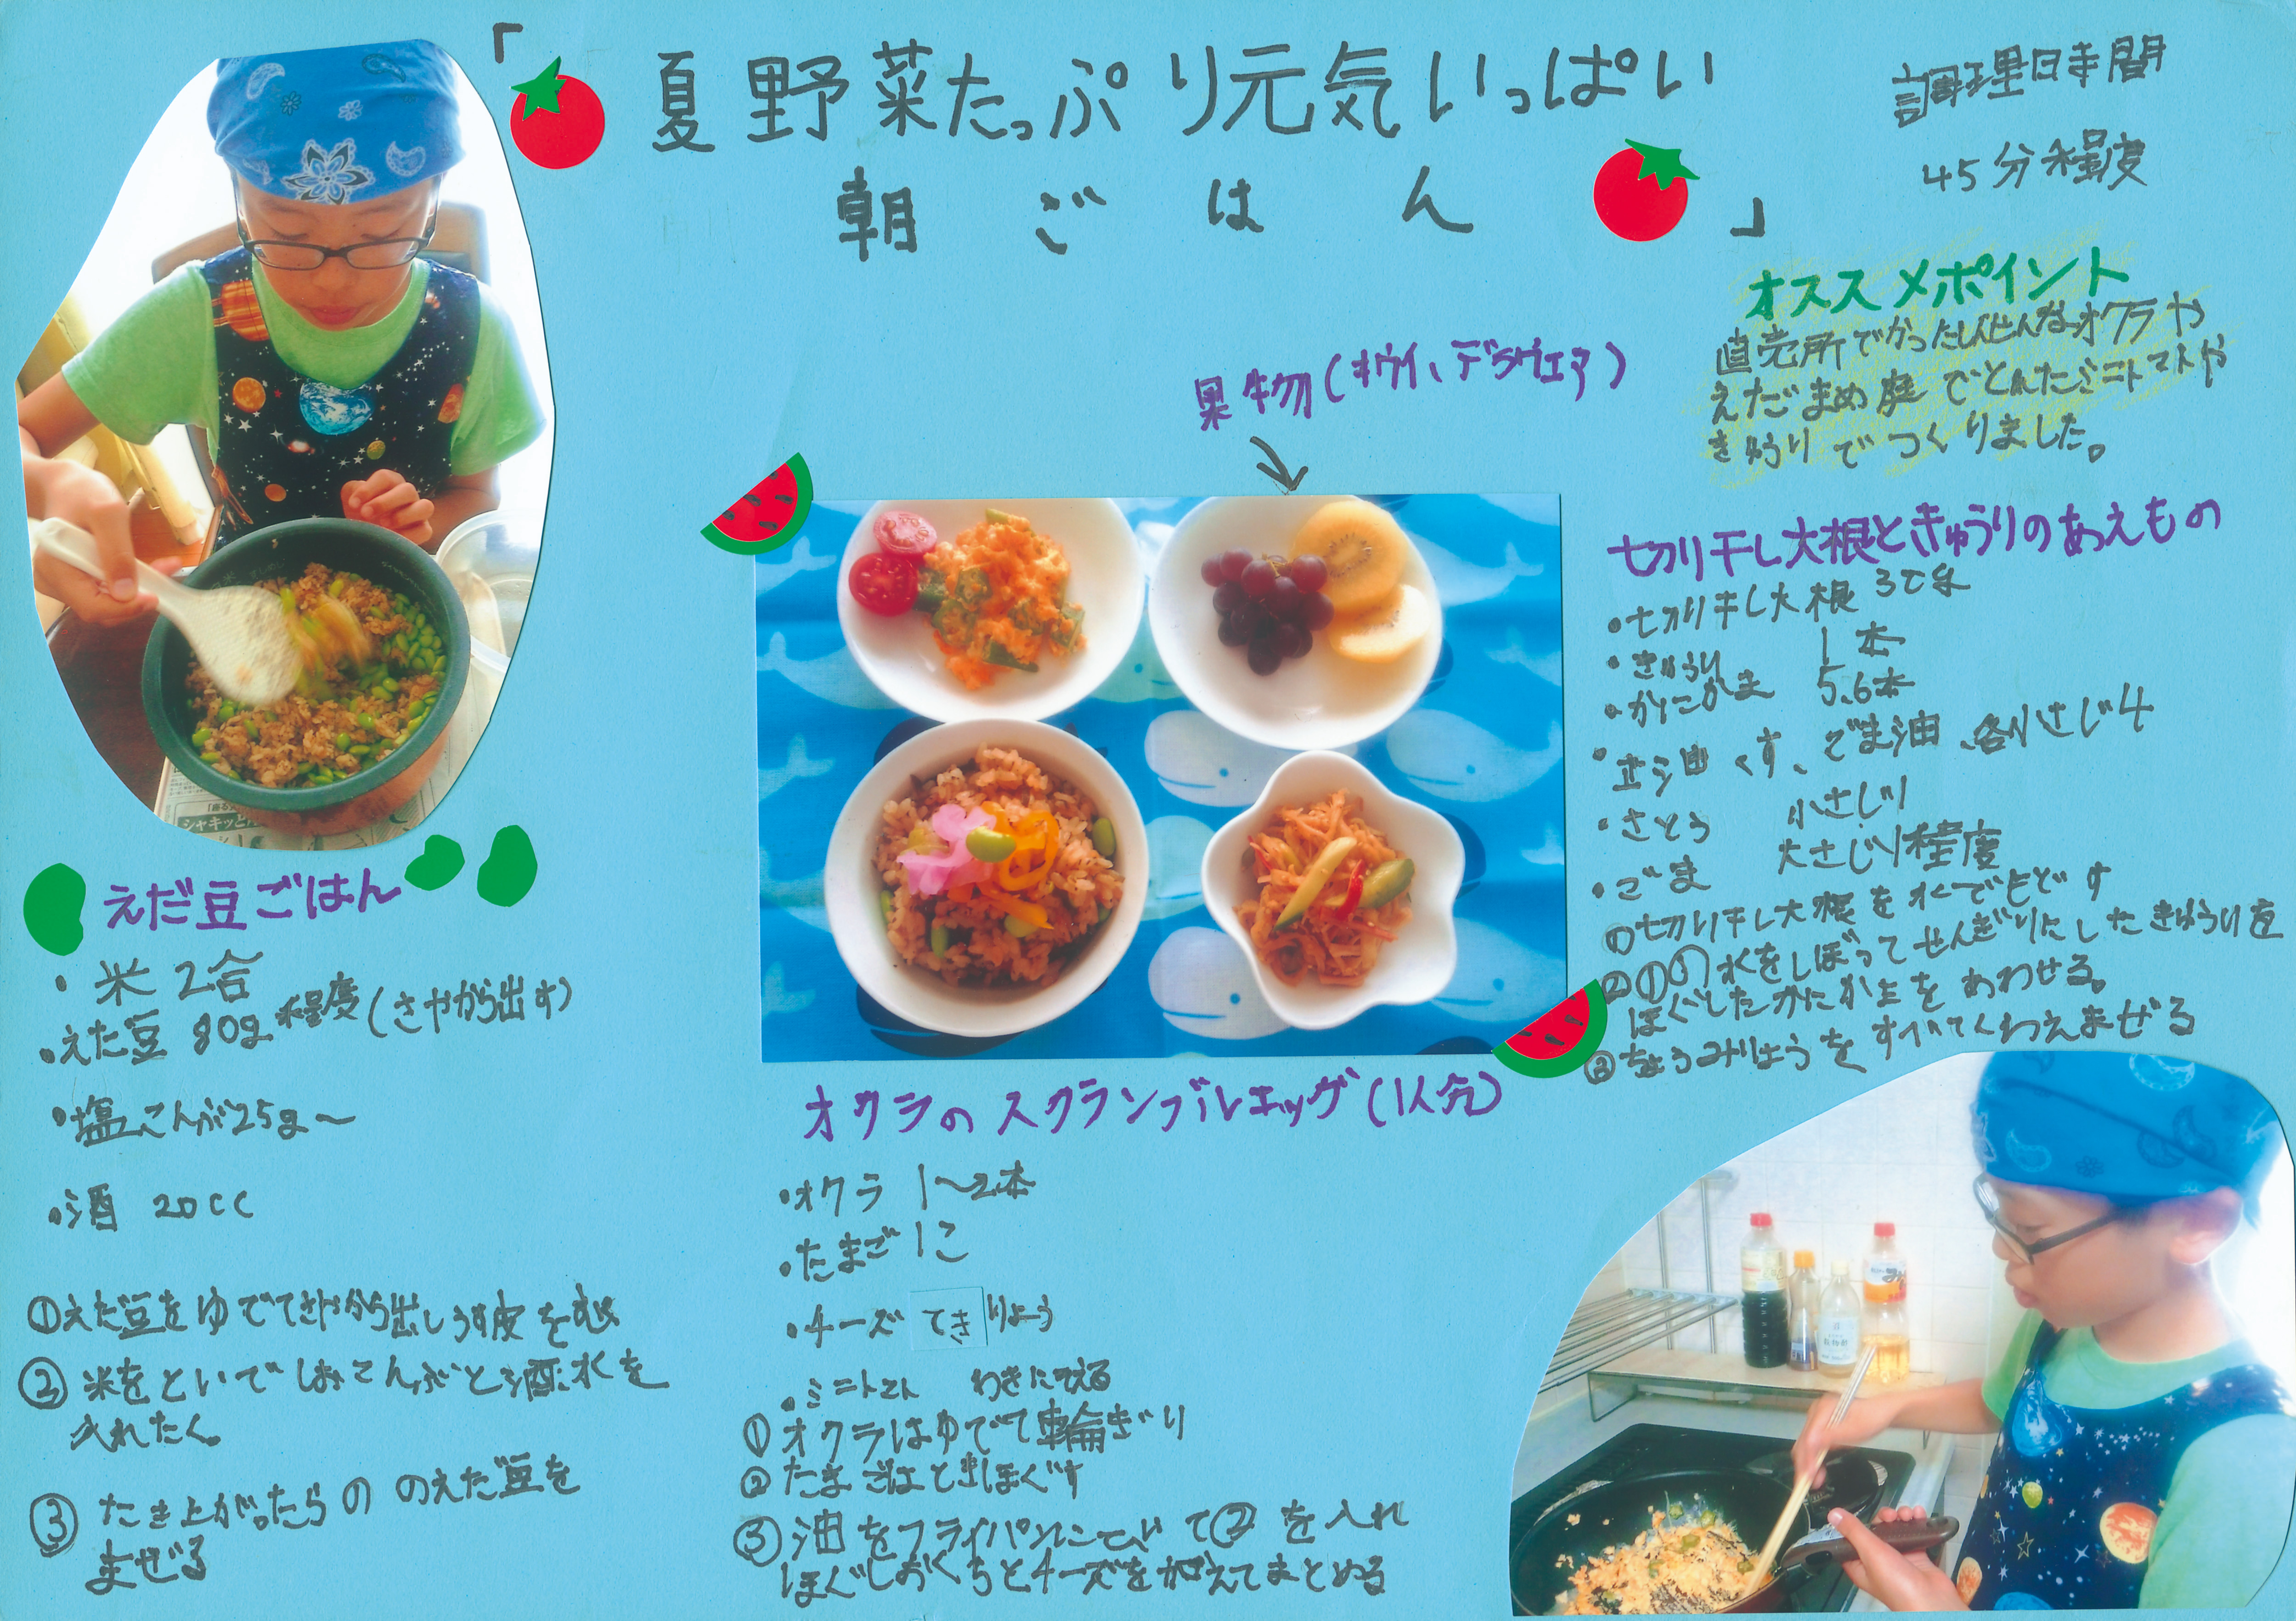 「夏野菜たっぷり元気いっぱい
朝ごはん」
調理時間
45分程度
オススメポイント
直売所でかったしんせんなオクラや
えだまめ庭でとれたミニトマトや
きゅうりでつくりました。
果物(キウイ、デラウェア)
切り干し大根ときゅうりのあえもの
・切り干し大根
・きゅうり 1本
・かにかま 5.6本
す、ごま油、各小さじ4
・さとう 小さじ1
・ごま 大さじ1程度
①切り干し大根を水でもどす
②①の水をしぼってせんぎりにしたきゅうりを
ほぐしたかにかまをあわせる。
③ちょうみりょうをすべてくわえまぜる
えだ豆ごはん
・米 2合
・えだ豆 80g程度(さやから出す)
・塩こんぶ25g〜
・酒 20cc
①えだ豆をゆでてさやから出しうす皮をむく
②米をといでしおこんぶと酒、水を
入れたく。
③たき上がったらのえだ豆を
まぜる
オクラのスクランブルエッグ(1人分)
・オクラ 1〜2本
・たまご 1こ
・チーズ てきりょう
・ミニトマト わきにそえる
①オクラはゆでて輪ぎり
②たまごはときほぐす
③油をフライパンに て②を入れ
ほぐしおくらとチーズを加えてまとめる
シャキッと